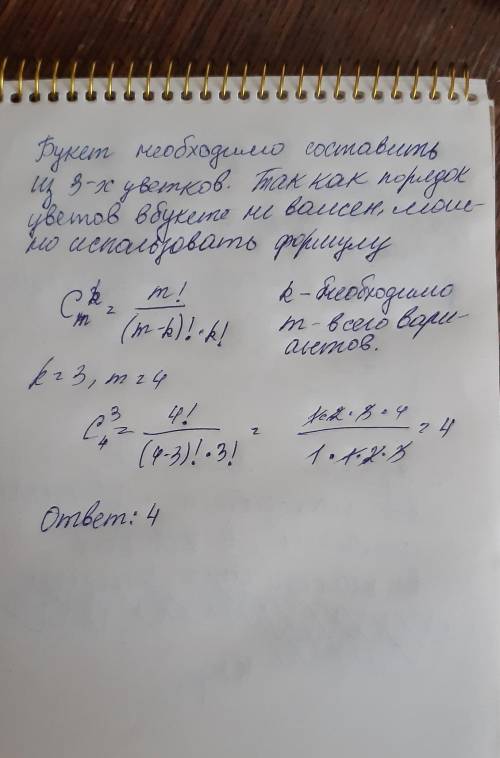 Букет необходимо составить
из 3-х цветков. Так как порядок
цветов в букете не важен, мож-
но использовать формулу
C_m^k = m! / (m-k)! · k!
k - необходимо
m - всего вари-
антов.
k = 3, m = 4
C_4^3 = 4! / (4-3)! · 3! = 1·2·3·4 / 1·1·2·3 = 4
Ответ: 4